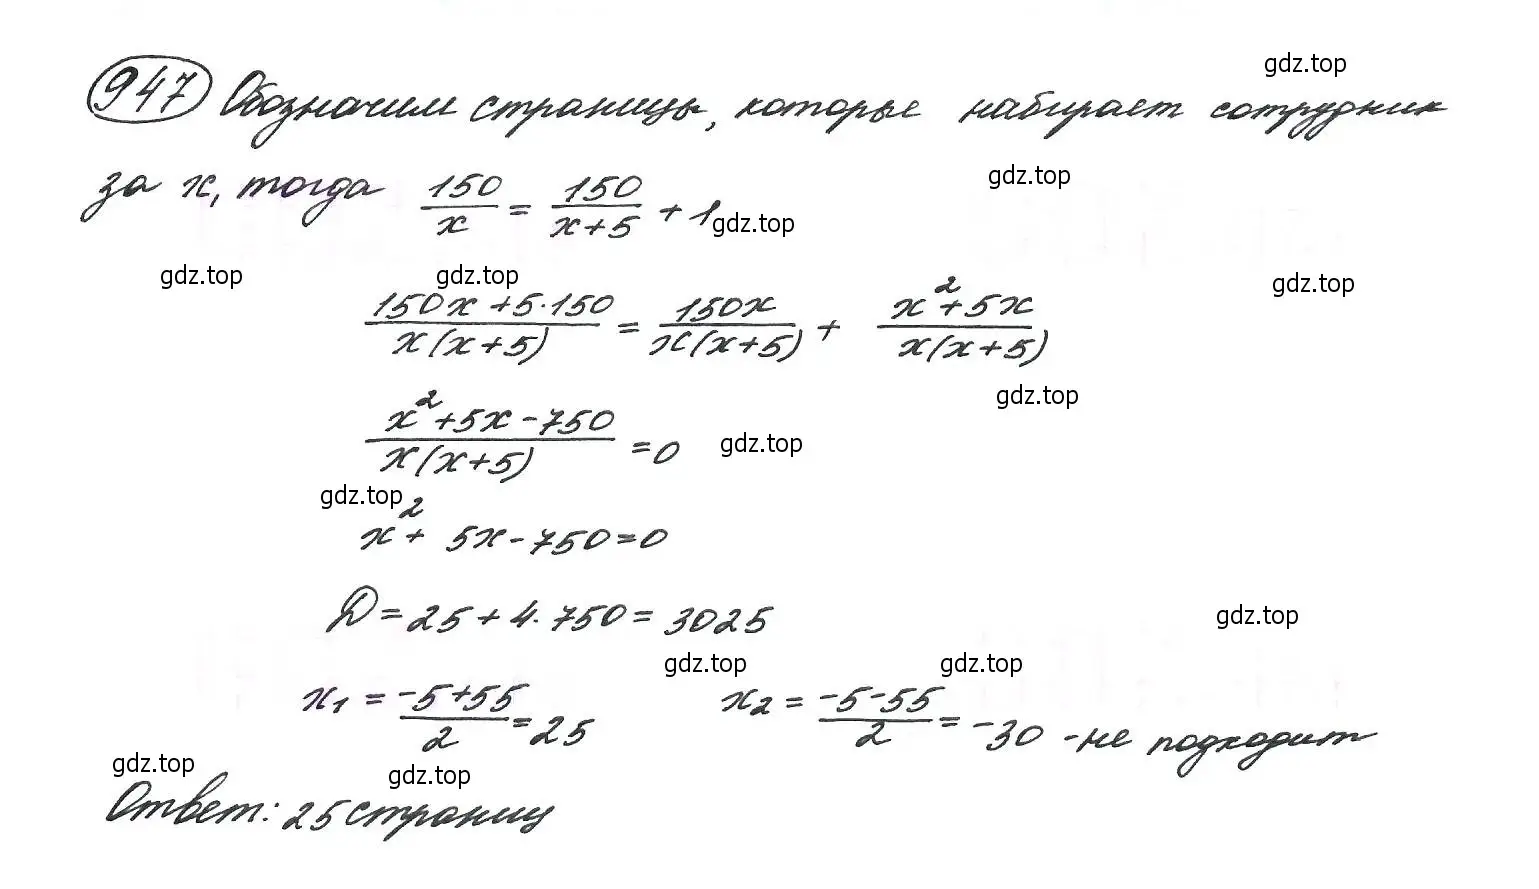 947 Обозначим страницы, которые набирает сотрудник
gdz.top
за x, тогда 150/x = 150/(x+5) + 1
gdz.top
gdz.top
gdz.top
gdz.top
gdz.top
(150x + 5·150)/(x(x+5)) = 150x/(x(x+5)) + (x²+5x)/(x(x+5))
gdz.top
(x²+5x-750)/(x(x+5)) = 0
gdz.top
gdz.top
x² + 5x - 750 = 0
D = 25 + 4·750 = 3025
gdz.top
gdz.top
gdz.top
x₁ = (-5+55)/2 = 25 x₂ = (-5-55)/2 = -30 - не подходит
gdz.top
gdz.top
Ответ: 25 страниц